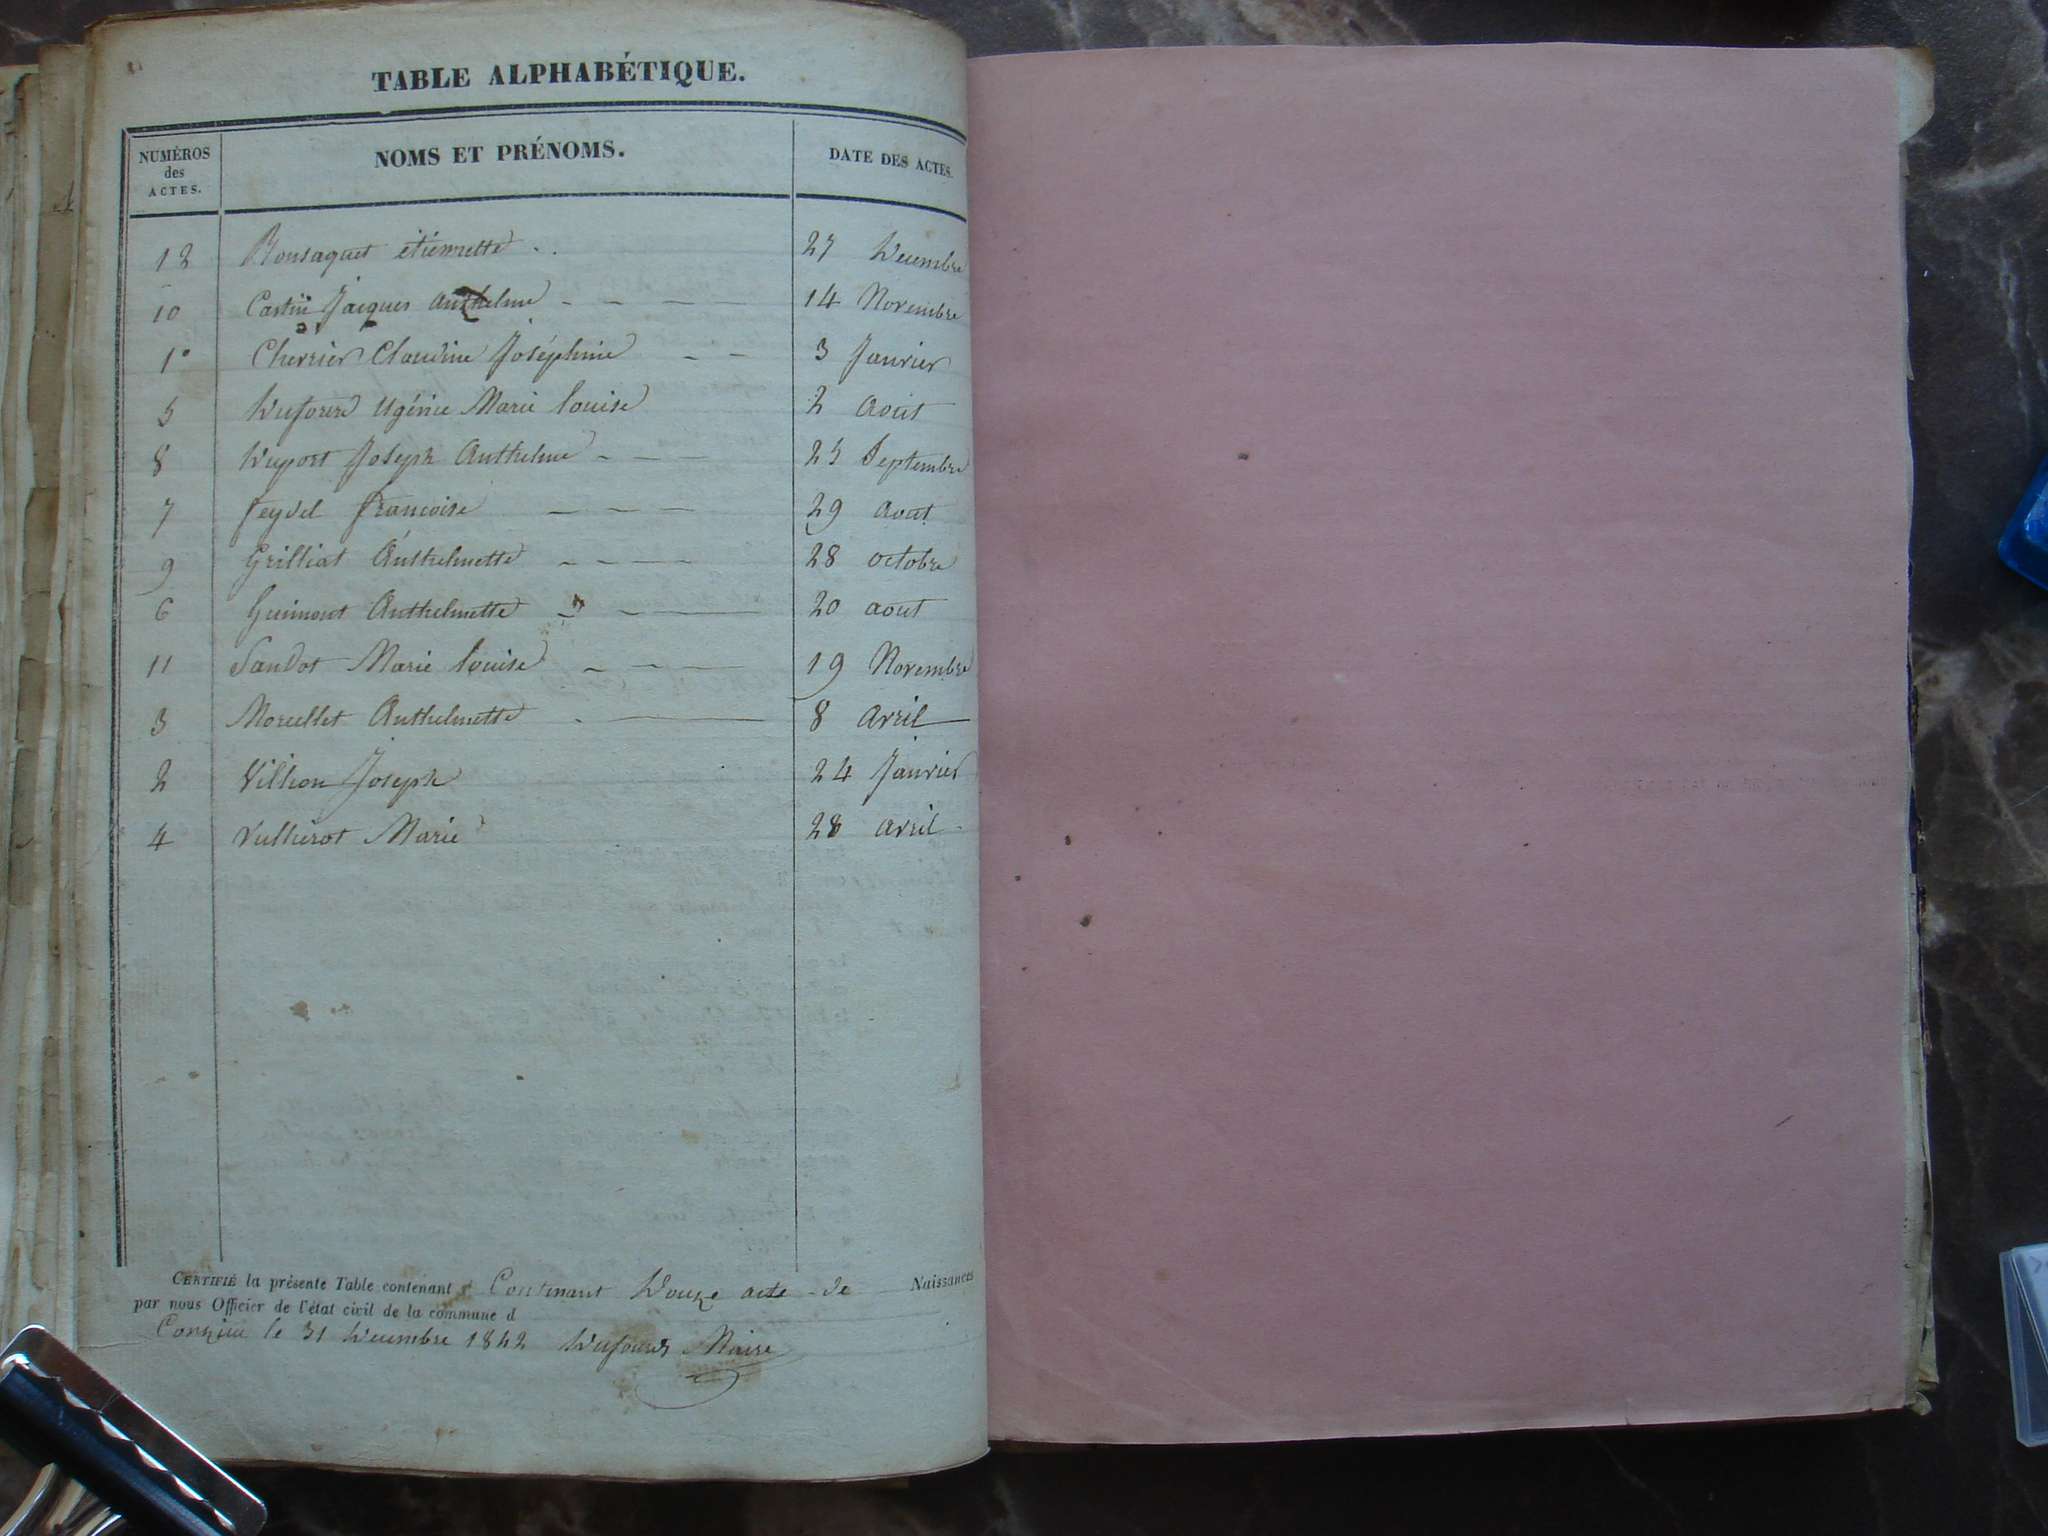 TABLE ALPHABÉTIQUE.
NUMÉROS des ACTES. NOMS ET PRÉNOMS. DATE DES ACTES.
12 Bonsaquet étiennette 27 Decembre
10 Jacques Anthelme 14 Novembre
1º Cherrier Claudine Joséphine 3 Janvier
5 Dufour Ugénie Marie Louise 2 Aout
8 Duport Joseph Anthelme 25 Septembre
7 feydel francoise 29 Aout
9 Grilliat Anthelmette 28 octobre
6 Guimont Anthelmette 20 aout
11 Sandot Marie Louise 19 Novembre
3 Morcellet Anthelmette 8 Avril
2 Villion Joseph 24 Janvier
4 Vullierot Marie 28 Avril
CERTIFIÉ la présente Table contenant Contenant Douze acte de Naissances
par nous Officier de l'état civil de la commune d
Conzieu le 31 Decembre 1842 Dufour Maire